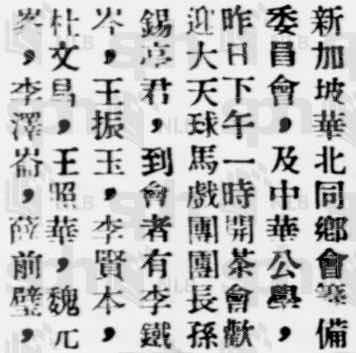 新加坡華北同鄉會籌備
委員會，及中華公學，
昨日下午一時開茶會歡
迎大天球馬戲團團長孫
錫亭君，到會者有李鐵
岑，王振玉，李賢本，
杜文昌，王照華，魏元
李澤崙，薛前璧，